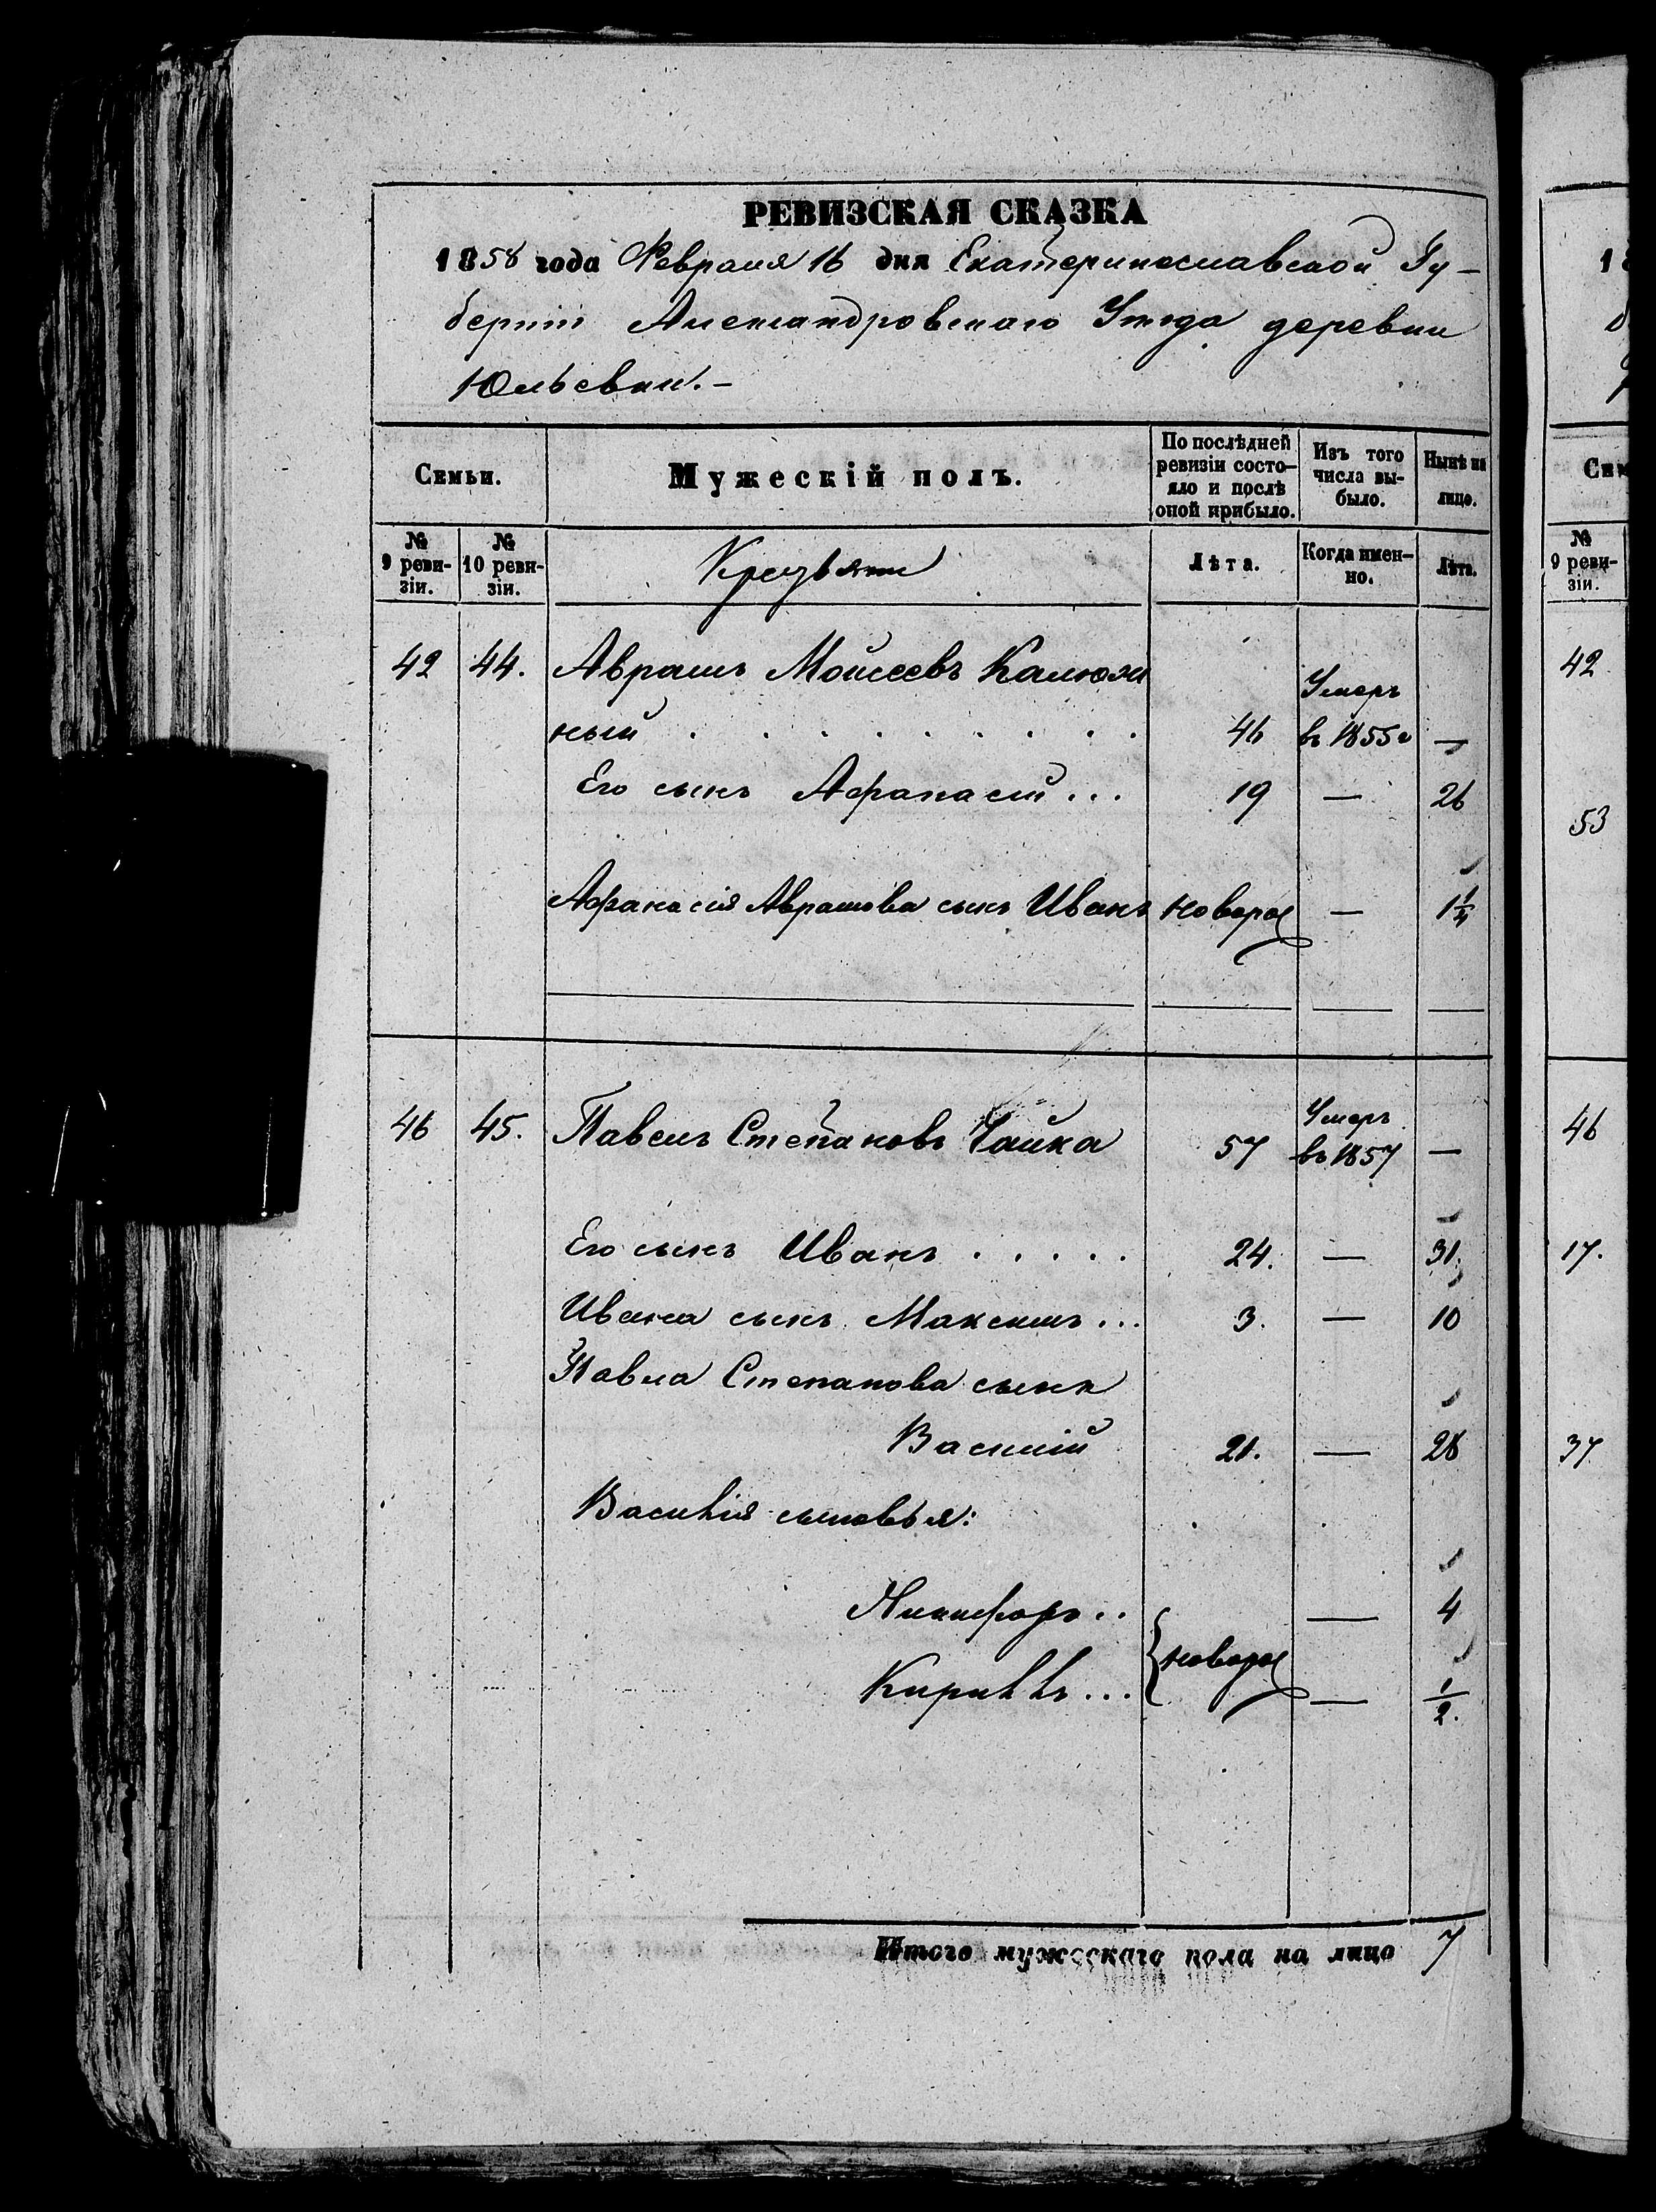 РЕВИЗСКАЯ СКАЗКА
1858 года Февраля 16 дня Екатеринославской Гу-
берніи Александровскаго Уѣзда деревни
Юльевки.-
Семьи. Мужескій полъ. По послѣдней ревизіи состо-яло и послѣ оной прибыло. Изъ того числа вы-было. Нынѣ на лицо.
№ 9 реви-зіи. № 10 реви-зіи. Лѣта. Когда имен-но. Лѣта.
42 44. Аврамъ Моисеевъ Калюж
ный . . . . . . . . . 46 Умеръ въ 1855 г —
Его сынъ Афанасій... 19 — 26
Афанасія Аврамова сынъ Иванъ новорож — 1 1/4
46 45. Павелъ Степановъ Чайка 57 Умеръ въ 1857 —
Его сынъ Иванъ . . . . . 24. — 31.
Ивана сынъ Максимъ... 3. — 10
Павла Степанова сынъ
Василій 21. — 28
Василія сыновья:
Никифоръ.. — 4
новорож
Кириллъ... — 1/2.
Итого мужескаго пола на лицо 7
1
Сем
№ 9 реви-зіи.
42
53
46
17.
37